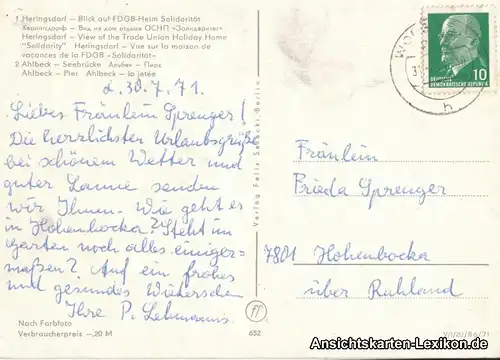 1 Heringsdorf – Blick auf FDGB-Heim Solidarität
Херингсдорф – Вид на дом отдыха ОСНП «Золидаритет»
Heringsdorf – View of the Trade Union Holiday Home
"Solidarity" Heringsdorf – Vue sur la maison de
vacances de la FDGB «Solidarität»
2 Ahlbeck – Seebrücke Альбек – Пирс
Ahlbeck – Pier Ahlbeck – la jetée
d. 30.7.71.
Liebes Fräulein Sprenger!
Die herzlichsten Urlaubsgrüße
bei schönem Wetter und
guter Laune senden
wir Ihnen. Wie geht es
in Hohenbocka? Steht im
Garten noch alles einiger-
maßen? Auf ein frohes
und gesundes Wiedersehen
Ihre P. Lehmanns.
Nach Farbfoto
Verbraucherpreis –,20 M
652
Verlag Felix Setecki, Berlin
DEUTSCHE
DEMOKRATISCHE REPUBLIK
10
h
Fräulein
Frieda Sprenger
7801 Hohenbocka
über Ruhland
V/1/20/86/71
Ansichtskarten-Lexikon.de